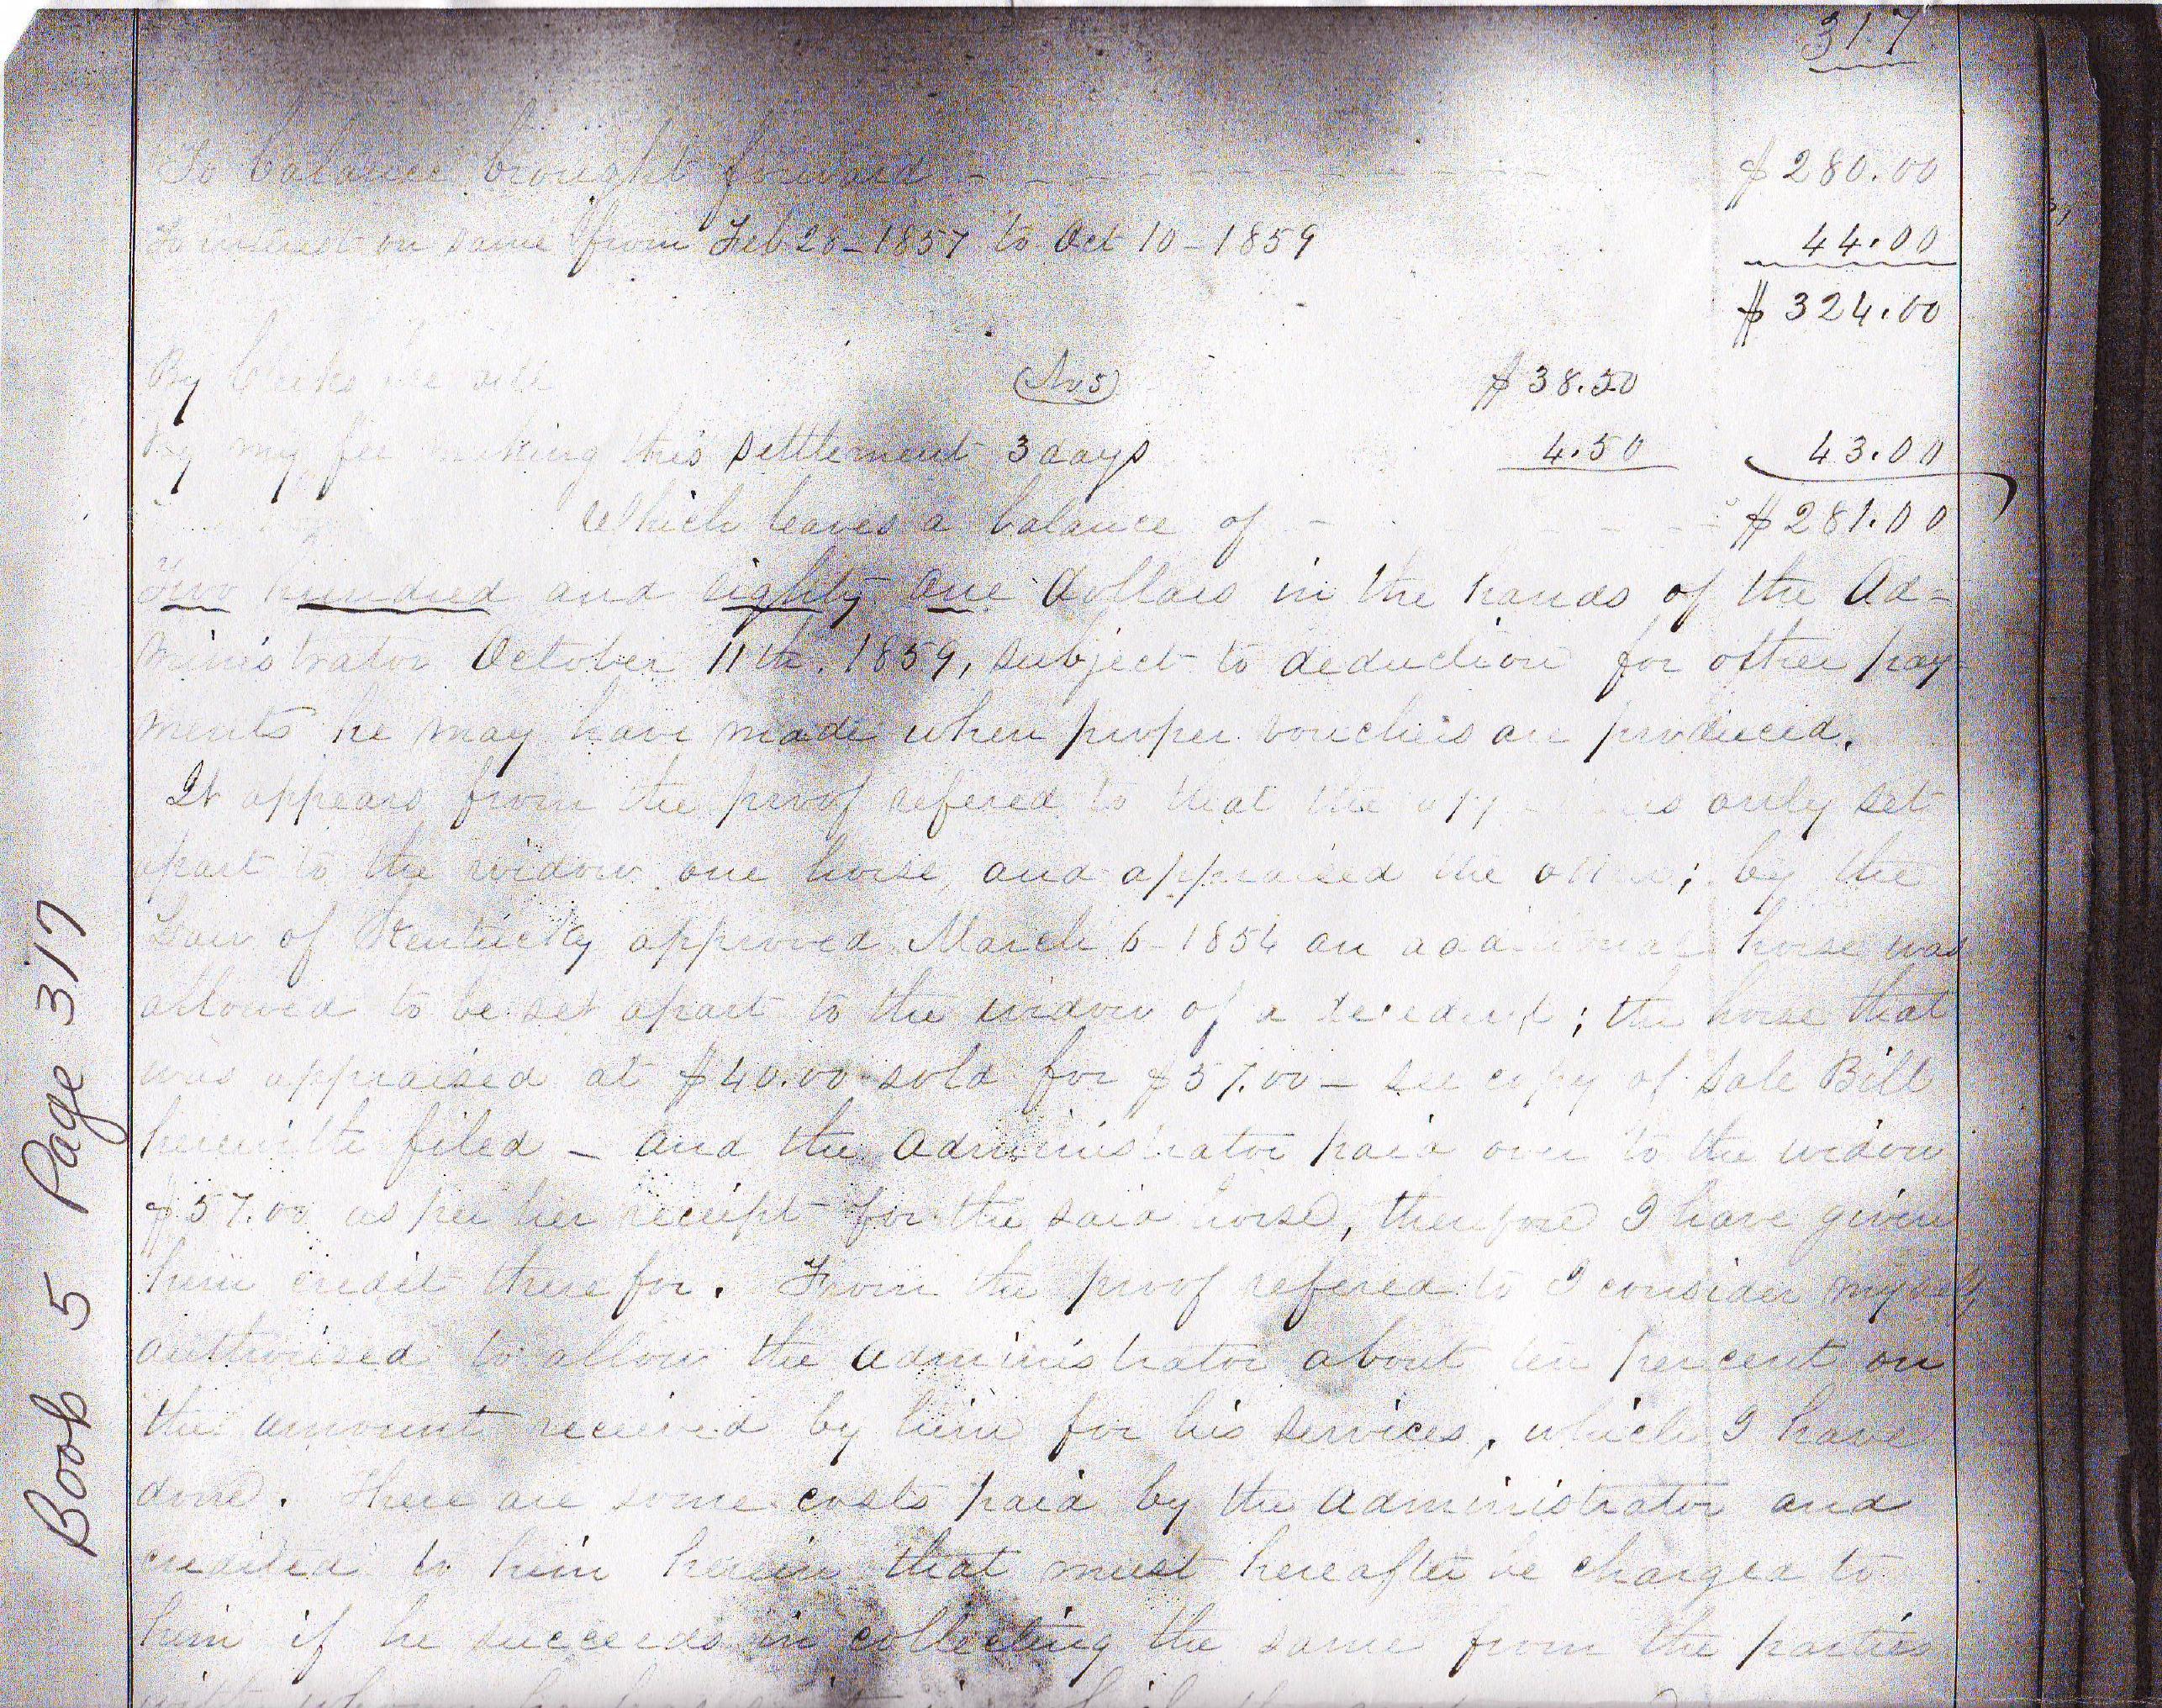 317
To balance brought forward - - - - - - - - - - - $280.00
To interest on same from Feb 28-1857 to Oct 10-1859 44.00
$324.00
By Clerks fee (No 5) $38.50
By my fee making this settlement 3 days 4.50 43.00
Which leaves a balance of - - - - $281.00
Two hundred and eighty one dollars in the hands of the Ad=
ministrator October 11th. 1859, subject to deduction for other pay-
ments he may have made when proper vouchers are produced.
It appears from the proof refered to that the only set
apart to the widow one horse, and appraised the other; by the
Law of Kentucky approved March 6-1854 an additional horse was
allowed to be set apart to the widow of a decedent; the horse that
was appraised at $40.00 sold for $57.00 - see copy of Sale Bill
herewith filed - and the administrator paid over to the widow
$57.00 as per her receipt for the said horse, therefore I have given
him credit therefor. From the proof refered to I consider myself
authorised to allow the administrator about ten per cent on
the amount received by him for his services, which I have
done. There are some costs paid by the administrator and
credited to him herein that must hereafter be charged to
him if he succeeds in collecting the same from the parties
Book 5 Page 317